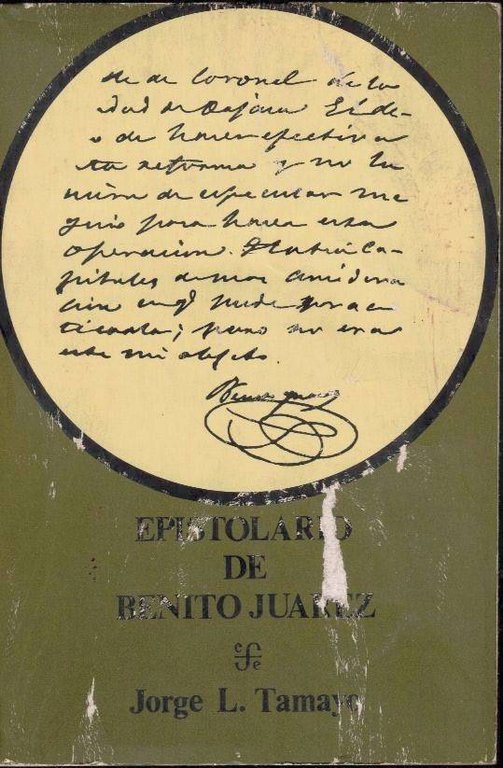 de de Coronel de la
dad de Oajaca El de-
o de hacer efectiva
ta reforma y no la
mira de especular me
guió para hacer esta
operacion. Habia Ca-
pitales de mas considera
cion en q.e pude practi
ticarla; pero no era
este mi objeto.
Benito Juarez
EPISTOLARIO
DE
BENITO JUAREZ
Jorge L. Tamayo